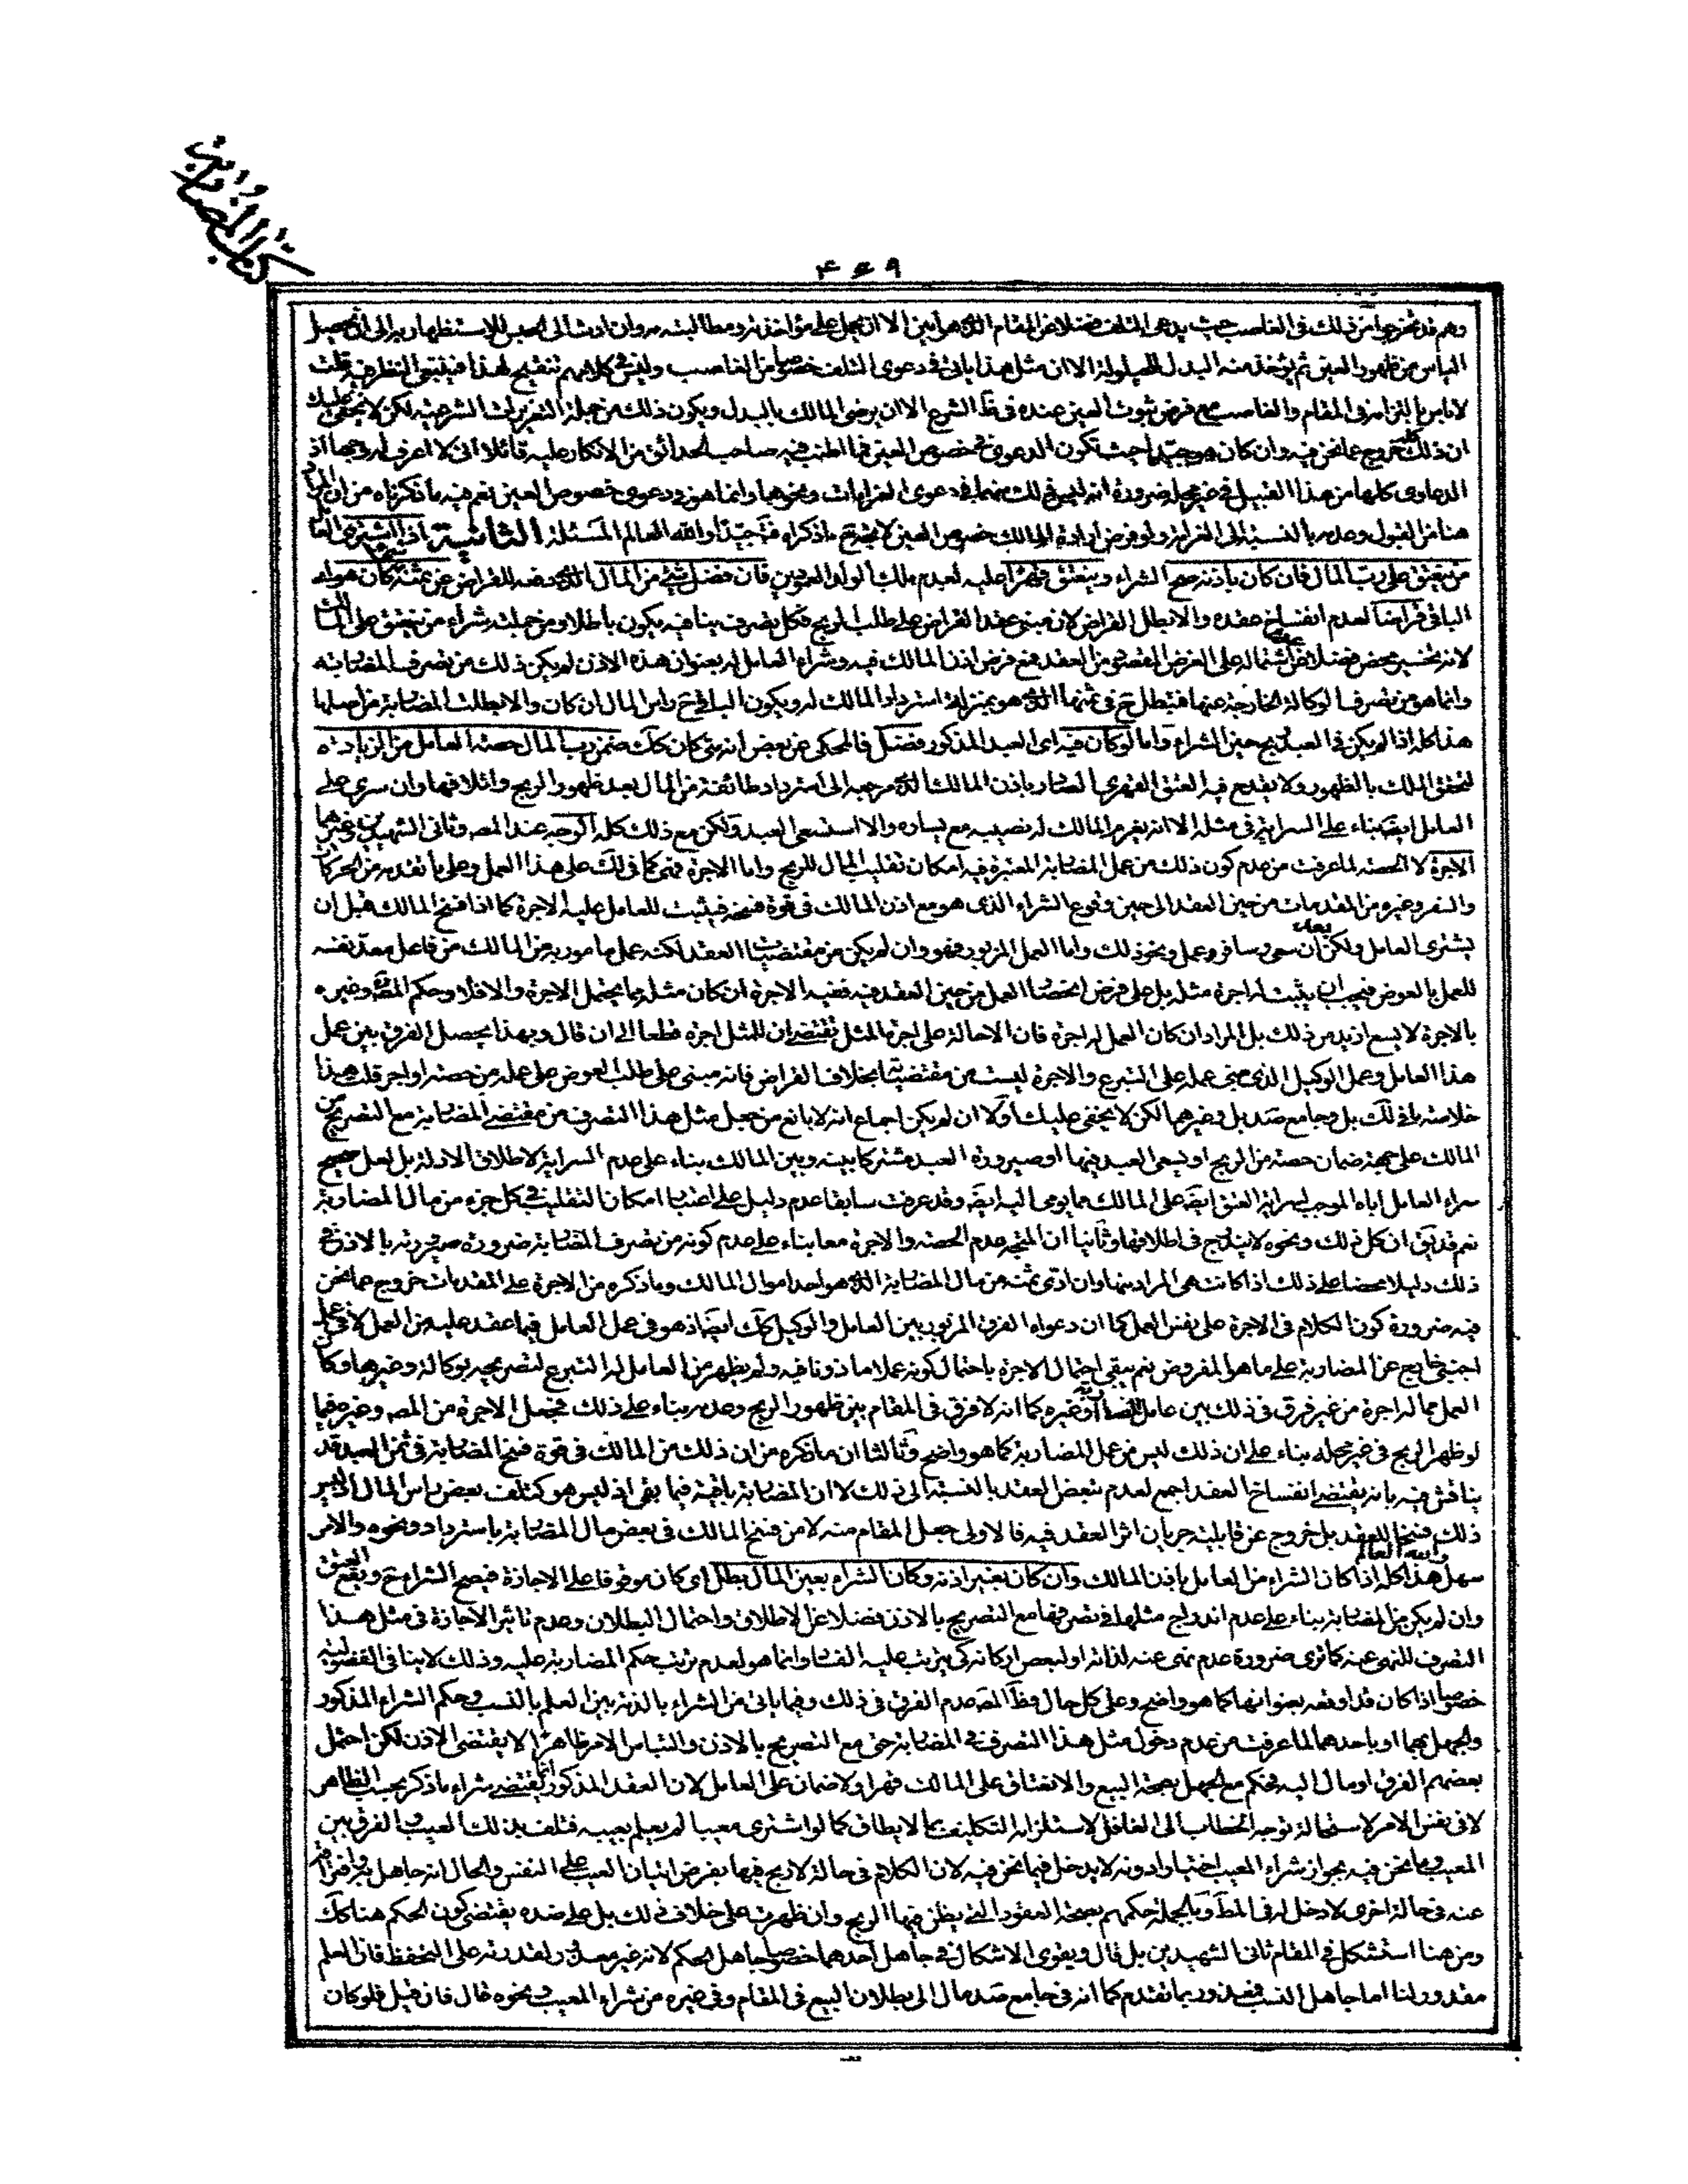 كتاب المضاربة
٤٦٩
وهم قد تحرجوا من ذلك فى الغاصب حيث يدعى التلف فضلا عن المقام الذى هو امين الا ان يحمل على مؤاخذته ومطالبته به وان ادت الى الحبس للاستظهار به الى ان يحصل
الياس من ظهور العين ثم يؤخذ منه البدل للحيلولة الا ان مثل هذا ياتى فى دعوى التلف خصوصا من الغاصب وليس فى كلامهم تنقيح لهذا فينبغى النظر فيه قلت
لا باس بالتزامه فى المقام والغاصب مع فرض ثبوت العين عنده فى ظ الشرع الا ان يرضى المالك بالبدل ويكون ذلك من جملة التعزيرات الشرعية لكن لا يخفى عليك
ان ذلك كله خروج عما نحن فيه وان كان هو جيدا حيث تكون الدعوى فى خصوص العين فما اطنب فيه صاحب الحدائق من الانكار عليه قائلا انى لا اعرف له وجها اذ
الدعاوى كلها من هذا القبيل فى غير محله ضرورة انه ليس ذلك منهما فى دعوى الغرامات ونحوها وانما هو فى دعوى خصوص العين نعم فيه ما ذكرناه من ان المراد
هنا من القبول وعدمه بالنسبة الى الغرامة ولو فرض ارادة المالك خصوص العين لا يتجه ما ذكراه فت جيدا والله العالم المسئلة الثامنة اذا اشترى العامل
من ينعتق على رب المال فان كان باذنه صح الشراء وينعتق قهرا عليه لعدم ملك الولد العمودين فان فضل شئ من المال الذى دفعه للقراض عن ثمنه كان هو اى
الباقى قراضا لعدم انفساخ عقده والا بطل القراض لان مبنى عقد القراض على طلب الربح فكل تصرف ينافيه يكون باطلا ومن جملته شراء من ينعتق على المالك
لانه تخسير محض فضلا عن اشتماله على الغرض المقصود من العقد فمع فرض اذن المالك فيه وشراء العامل له بعنوان هذه الاذن لم يكن ذلك من تصرف المضاربة
وانما هو من تصرف الوكالة الخارجة عنها فتبطل ح فى ثمنها الذى هو بمنزلة استرداد المالك له ويكون الباقى ح راس المال ان كان والا بطلت المضاربة من اصلها
هذا كله اذا لم يكن فى العبد ربح حين الشراء واما لو كان فيه اى العبد المذكور فضل فالمحكى عن بعض انه متى كان كك ضمن رب المال حصة العامل من الزيادة
لتحقق الملك بالظهور ولا يقدح فيه العتق القهرى الصادر باذن المالك الذى مرجعه الى استرداد طائفة من المال بعد ظهور الربح واتلافها وان سرى على
العامل ايضا بناء على السراية فى مثله الا انه يغرم المالك له نصيبه مع يساره والا استسعى العبد ولكن مع ذلك كله الوجه عند المصه وثانى الشهيدين وغيرهما
الاجرة لا الحصة لما عرفت من عدم كون ذلك من عمل المضاربة المعتبرة فيه امكان تقليب المال للربح واما الاجرة فهى كما فى لك على هذا العمل وعلى ما تقدمه من الحركات
والسفر وغيره من المقدمات من حين العقد الى حين وقوع الشراء الذى هو مع اذن المالك فى قوة فسخه فيثبت للعامل عليه الاجرة كما اذا فسخ المالك قبل ان
يشترى العامل ولكن بعد ان سعى وسافر وعمل ونحو ذلك واما العمل المزبور فهو وان لم يكن من مقتضيات العقد لكنه عمل مامور به من المالك من فاعل معد نفسه
للعمل بالعوض فيجب ان يثبت له اجرة مثله بل على فرض انحصار العمل من حين العقد فيه ففيه الاجرة ان كان مثله مما يحتمل الاجرة والا فلا وحكم المصه وغيره
بالاجرة لا يسع ازيد من ذلك بل المراد ان كان العمل له اجرة فان الاحالة على اجرة المثل تقتضى ان للمثل اجرة قطعا الى ان قال وبهذا يحصل الفرق بين عمل
هذا العامل وعمل الوكيل الذى مبنى عمله على التبرع والاجرة ليست من مقتضياتها بخلاف القراض فانه مبنى على طلب العوض على عمله من حصة او اجر قلت هذا
خلاصة ما فى لك بل وجامع صد بل وغيرهما لكن لا يخفى عليك اولا ان لم يكن اجماع انه لا مانع من جعل مثل هذا التصرف من مقتضى المضاربة مع التصريح من
المالك على جهة ضمان حصته من الربح او يسعى العبد فيها او صيرورة العبد مشتركا بينه وبين المالك بناء على عدم السراية لاطلاق الادلة بل لعل صحيح
شراء العامل اباه الموجب لسراية العتق ايضا على المالك مما يومى اليه ايضا وقد عرفت سابقا عدم دليل على اعتبار امكان التقليب فى كل جزء من مال المضاربة
نعم قد يق ان كل ذلك ونحوه لا يندرج فى اطلاقها وثانيا ان المتجه عدم الحصة والاجرة معا بناء على عدم كونه من تصرف المضاربة ضرورة صيرورته بالاذن فى
ذلك دليلا محضا على ذلك اذا كانت هى المراد منها وان ادى ثمنه من مال المضاربة الذى هو احد اموال المالك وما ذكره من الاجرة على المقدمات خروج عما نحن
فيه ضرورة كون الكلام فى الاجرة على نفس العمل كما ان دعواه الفرق المزبور بين العامل والوكيل كك ايضا اذ هو فى عمل العامل فيما عقد عليه من العمل لا فى عمل
اجنبى خارج عن المضاربة على ما هو المفروض نعم يبقى احتمال الاجرة باحتمال كونه عملا ماذونا فيه ولم يظهر من العامل له التبرع لتصريحه بوكالة وغيرها وكان
العمل مما له اجرة من غير فرق فى ذلك بين عامل المضاربة وغيره كما انه لا فرق فى المقام بين ظهور الربح وعدمه بناء على ذلك فجعل الاجرة من المصه وغيره فيما
لو ظهر الربح فى غير محله بناء على ان ذلك ليس من عمل المضاربة كما هو واضح وثالثا ان ما ذكره من ان ذلك من المالك فى قوة فسخ المضاربة فى ثمن العبد قد
يناقش فيه بانه يقتضى انفساخ العقد اجمع لعدم تبعض العقد بالنسبة الى ذلك لا ان المضاربة باقية فيما بقى اذ ليس هو كتلف بعض راس المال الذى ليس
ذلك فسخا للعقد بل خروج عن قابلية جريان اثر العقد فيه فالاولى جعل المقام منه لا من فسخ المالك فى بعض مال المضاربة باسترداد ونحوه والامر
سهل والله العالم هذا كله اذا كان الشراء من العامل باذن المالك وان كان بغير اذنه وكان الشراء بعين المال بطل اى كان موقوفا على الاجازة فيصح الشراء ح ويقع العتق
وان لم يكن من المضاربة بناء على عدم اندراج مثلها فى تصرفها مع التصريح بالاذن فضلا عن الاطلاق واحتمال البطلان وعدم تاثير الاجازة فى مثل هذا
التصرف للنهى عنه كما ترى ضرورة عدم نهى عنه لذاته او لبعض اركانه كى يترتب عليه الفساد وانما هو لعدم ترتب حكم المضاربة عليه وذلك لا ينافى الفضولية
خصوصا اذا كان قد اوقعه بعنوانها كما هو واضح وعلى كل حال فظ المصه عدم الفرق فى ذلك وفيما ياتى من الشراء بالذمة بين العلم بالنسب وحكم الشراء المذكور
والجهل بهما او باحدهما لما عرفت من عدم دخول مثل هذا التصرف فى المضاربة حتى مع التصريح بالاذن والتباس الامر ظاهرا لا يقتضى الاذن لكن احتمل
بعضهم الفرق او مال اليه فحكم مع الجهل بصحة البيع والانعتاق على المالك قهرا ولا ضمان على العامل لان العقد المذكور انما يقتضى شراء ما ذكر بحسب الظاهر
لا فى نفس الامر لاستحالة توجه الخطاب الى الغافل لاستلزامه التكليف بما لا يطاق كما لو اشترى معيبا لم يعلم بعيبه فتلف بذلك العيب والفرق بين
المعيب وما نحن فيه بجواز شراء المعيب اختيارا دونه لا يدخل فيما نحن فيه لان الكلام فى حالة لا ربح فيها بفرض اتيان العيب على النفس والحال انه جاهل به وافتراقه
عنه فى حالة اخرى لا دخل له فى المط وبالجملة حكمهم بصحة العقود التى يظن فيها الربح وان ظهرت على خلاف ذلك بل على ضده يقتضى كون الحكم هنا كك
ومن هنا استشكل فى المقام ثانى الشهيدين بل قال ويقوى الاشكال فى جاهل احدهما خصوصا جاهل الحكم لانه غير معذور لقدرته على التحفظ فان العلم
مقدور لنا اما جاهل النسب فمعذور بما تقدم كما انه فى جامع صد مال الى بطلان البيع فى المقام وفى غيره من شراء المعيب ونحوه قال فان قيل فلو كان